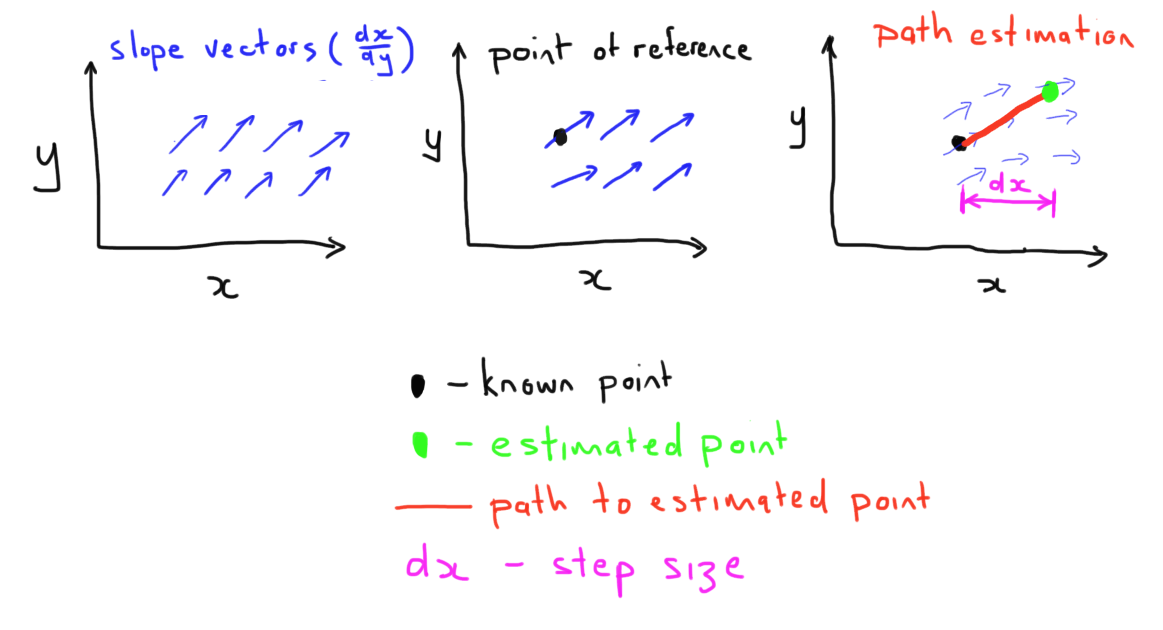 slope vectors (dx/dy)
point of reference
path estimation
y
x
y
x
y
dx
x
- known point
- estimated point
path to estimated point
dx - step size